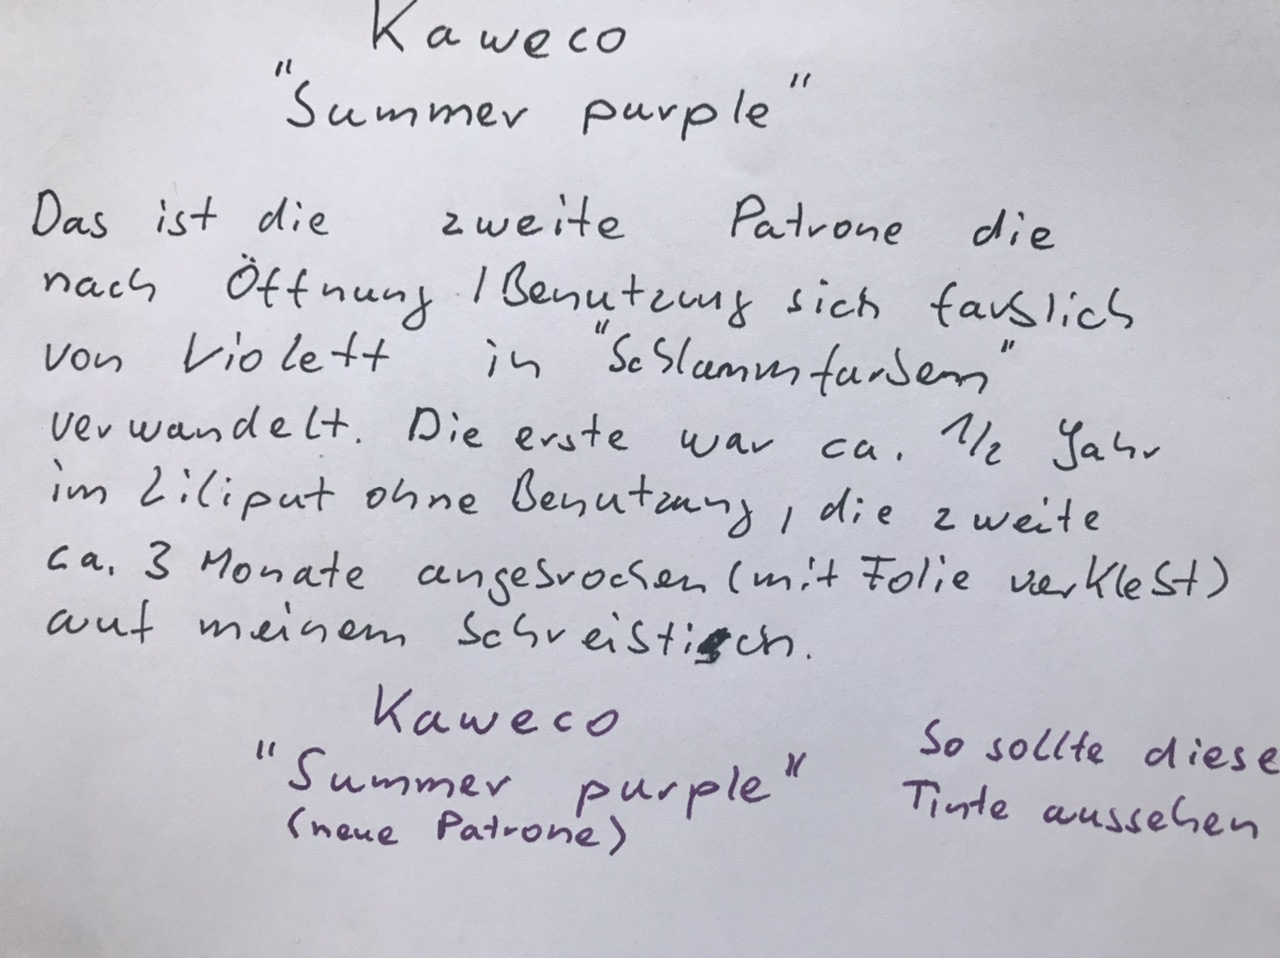 Kaweco
"Summer purple"
Das ist die zweite Patrone die
nach Öffnung / Benutzung sich farblich
von Violett in "Schlammfarben"
verwandelt. Die erste war ca. 1/2 Jahr
im Liliput ohne Benutzung, die zweite
ca. 3 Monate angebrochen (mit Folie verklebt)
auf meinem Schreibtisch.
Kaweco
"Summer purple"
(neue Patrone)
So sollte diese
Tinte aussehen